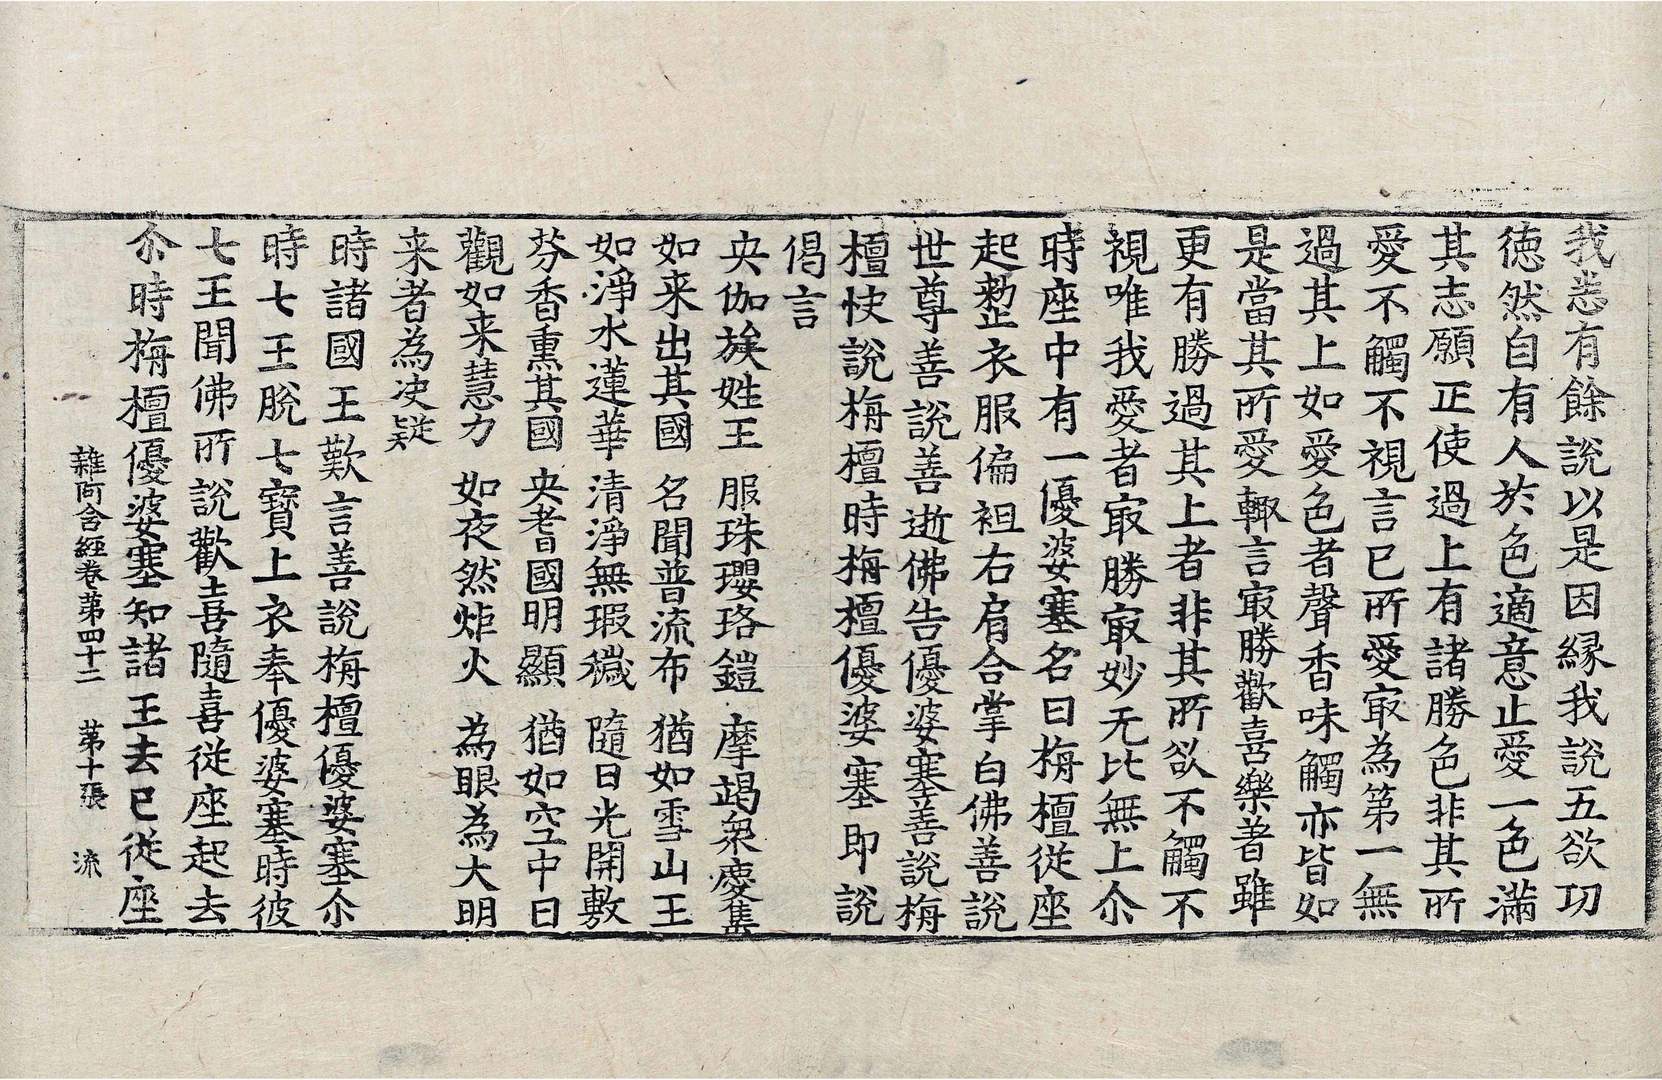 我悉有餘說以是因緣我說五欲功
德然自有人於色適意止愛一色滿
其志願正使過上有諸勝色非其所
愛不觸不視言已所愛冣為第一無
過其上如愛色者聲香味觸亦皆如
是當其所愛輙言冣勝歡喜樂著雖
更有勝過其上者非其所欲不觸不
視唯我愛者冣勝冣妙无比無上尒
時座中有一優婆塞名曰栴檀從座
起整衣服偏袒右肩合掌白佛善說
世尊善說善逝佛告優婆塞善說栴
檀快說栴檀時栴檀優婆塞即說
偈言
央伽族姓王 服珠瓔珞鎧 摩竭衆慶集
如来出其國 名聞普流布 猶如雪山王
如淨水蓮華 清淨無瑕穢 隨日光開敷
芬香熏其國 央耆國明顯 猶如空中日
觀如来慧力 如夜然炬火 為眼為大明
来者為决疑
時諸國王歎言善說栴檀優婆塞尒
時七王脫七寶上衣奉優婆塞時彼
七王聞佛所說歡喜隨喜從座起去
尒時栴檀優婆塞知諸王去已從座
雜阿含經卷第四十二 第十張 流